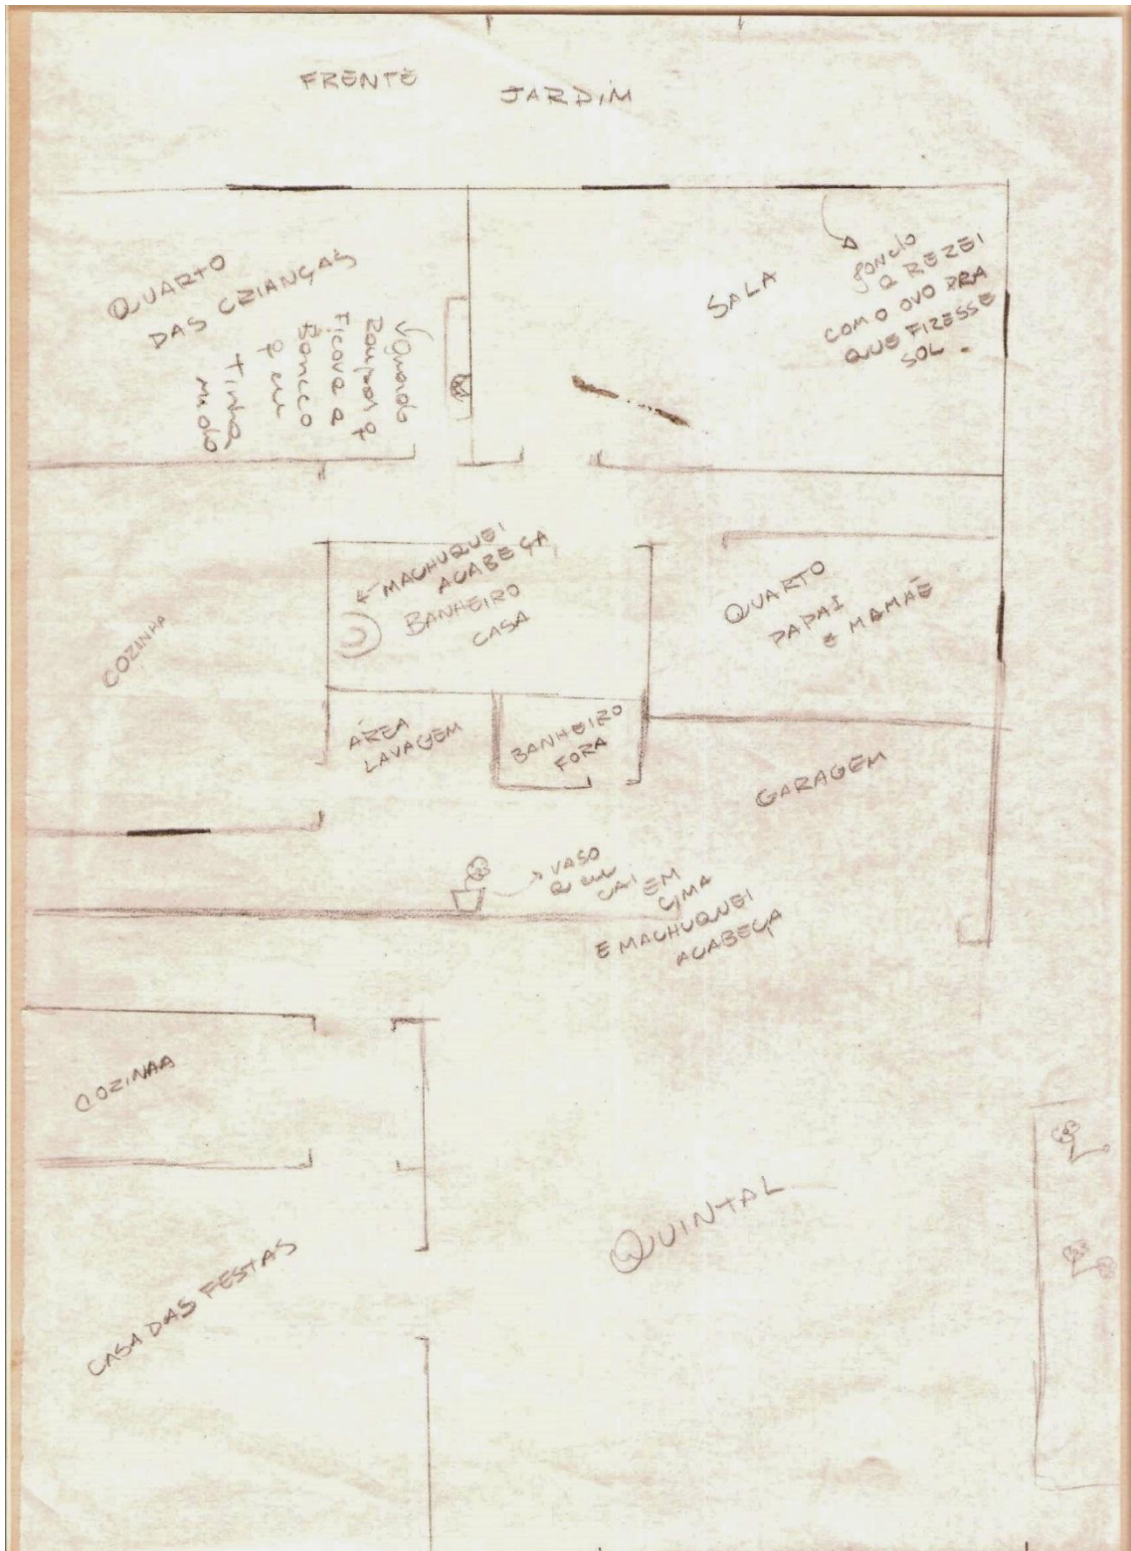 FRENTE
JARDIM
QUARTO
DAS CRIANÇAS
Roupas q
Ficava a
Boneco
q eu
tinha
medo
SALA
Q REZEI
COM O OVO PRA
QUE FIZESSE
SOL.
MACHUQUEI
A CABEÇA
BANHEIRO
CASA
QUARTO
PAPAI
E MAMÃE
COZINHA
ÁREA
LAVAGEM
BANHEIRO
FORA
GARAGEM
VASO
Q eu
CAI EM
CIMA
E MACHUQUEI
A CABEÇA
COZINHA
QUINTAL
CASA DAS FESTAS